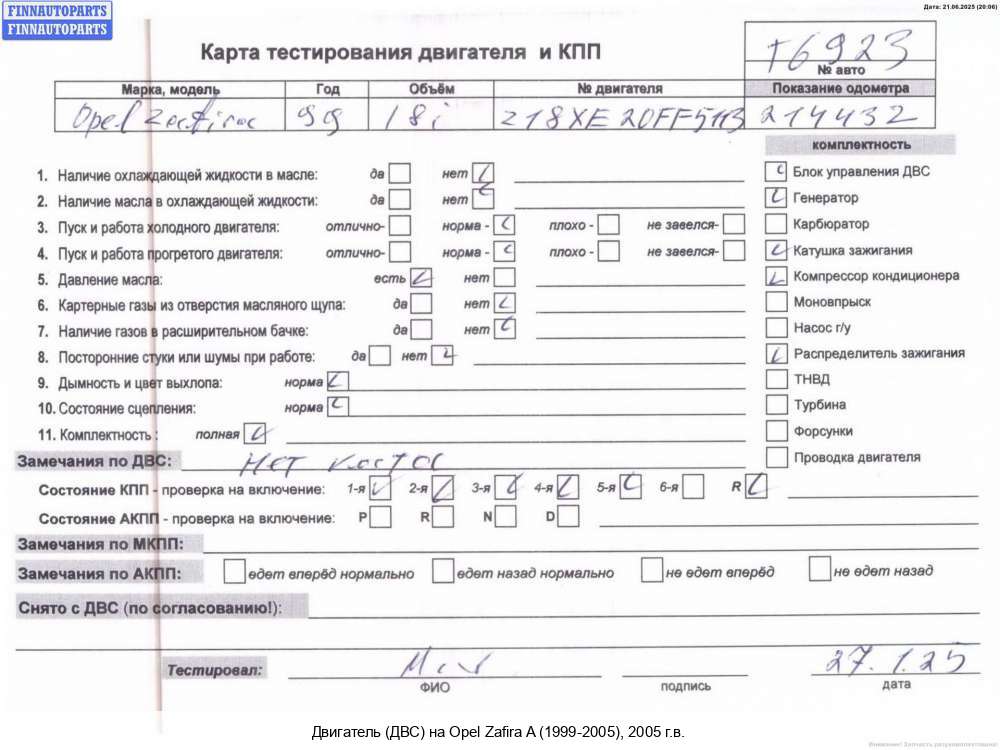 FINNAUTOPARTS
FINNAUTOPARTS
Дата: 21.06.2025 (20:06)
Карта тестирования двигателя и КПП
T6923
№ авто
Марка, модель Год Объём № двигателя Показание одометра
Opel Zafira 99 18i Z18XE 20FF5113 214432
комплектность
1. Наличие охлаждающей жидкости в масле: да нет
Блок управления ДВС
2. Наличие масла в охлаждающей жидкости: да нет
Генератор
3. Пуск и работа холодного двигателя: отлично- норма - плохо - не завелся-
Карбюратор
4. Пуск и работа прогретого двигателя: отлично- норма - плохо - не завелся-
Катушка зажигания
5. Давление масла: есть нет
Компрессор кондиционера
6. Картерные газы из отверстия масляного щупа: да нет
Моновпрыск
7. Наличие газов в расширительном бачке: да нет
Насос г/у
8. Посторонние стуки или шумы при работе: да нет
Распределитель зажигания
9. Дымность и цвет выхлопа: норма
ТНВД
10. Состояние сцепления: норма
Турбина
11. Комплектность : полная
Форсунки
Замечания по ДВС: Нет
Проводка двигателя
Состояние КПП - проверка на включение: 1-я 2-я 3-я 4-я 5-я 6-я R
Состояние АКПП - проверка на включение: P R N D
Замечания по МКПП:
Замечания по АКПП: едет вперёд нормально едет назад нормально не едет вперёд не едет назад
Снято с ДВС (по согласованию!):
Тестировал: 27.1.25
ФИО подпись дата
Двигатель (ДВС) на Opel Zafira A (1999-2005), 2005 г.в.
Внимание! Запчасть разукомплектована!